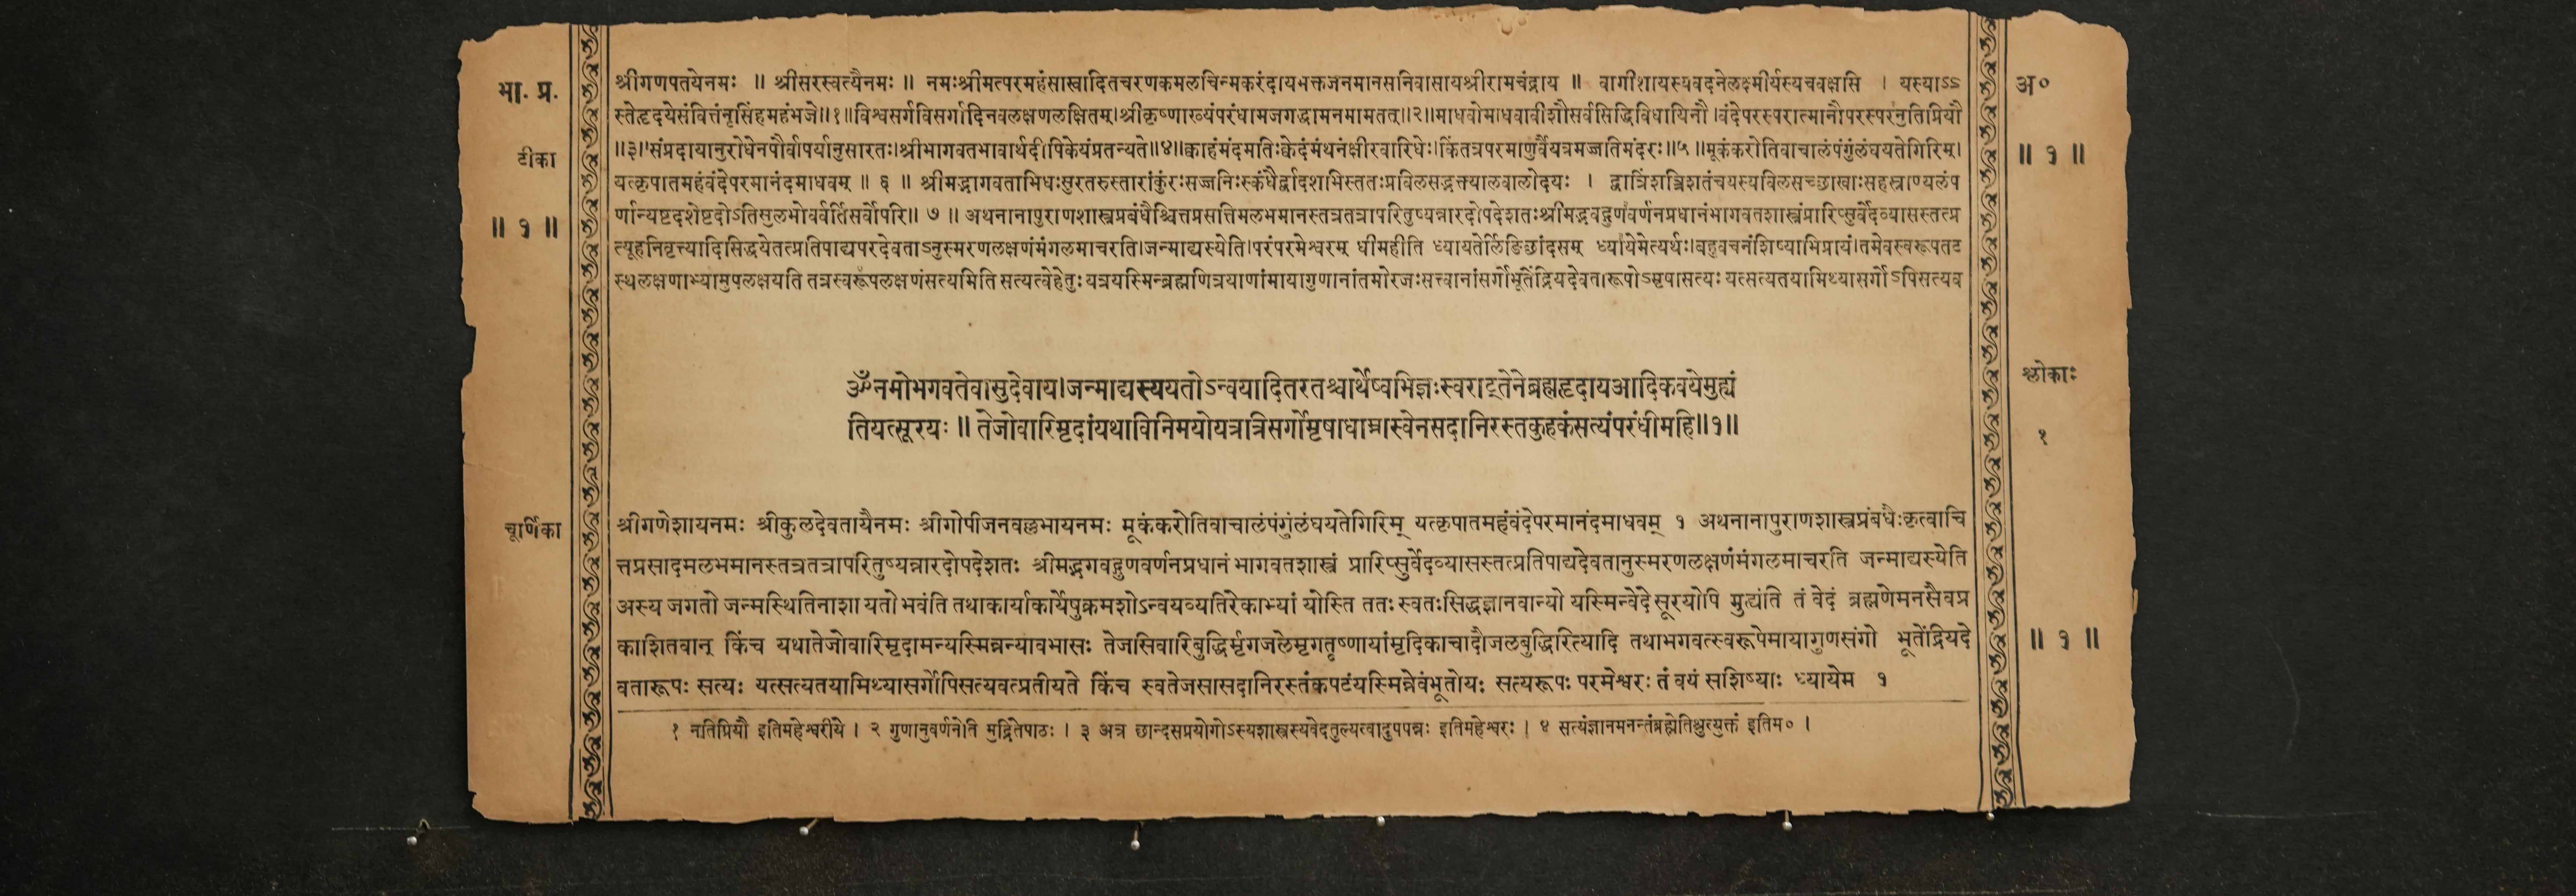 भा. प्र.
टीका
॥ १ ॥
श्रीगणपतयेनमः ॥ श्रीसरस्वत्यैनमः ॥ नमःश्रीमत्परमहंसास्वादितचरणकमलचिन्मकरंदायभक्तजनमानसनिवासायश्रीरामचंद्राय ॥ वागीशायस्यवदनेलक्ष्मीर्यस्यचवक्षसि । यस्याऽऽ
स्तेहृदयेसंवित्तंनृसिंहमहंभजे॥१॥विश्वसर्गविसर्गादिनवलक्षणलक्षितम्।श्रीकृष्णाख्यंपरंधामजगद्धामनमामतत्॥२॥माधवोमाधवावीशौसर्वसिद्धिविधायिनौ।वंदेपरस्परात्मानौपरस्परनुतिप्रियौ
॥३॥संप्रदायानुरोधेनपौर्वापर्यानुसारतः।श्रीभागवतभावार्थदीपिकेयंप्रतन्यते॥४॥क्वाहंमंदमतिःक्वेदंमंथनंक्षीरवारिधेः।किंतत्रपरमाणुर्वैयत्रमज्जतिमंदरः॥५॥मूकंकरोतिवाचालंपंगुंलंघयतेगिरिम्।
यत्कृपातमहंवंदेपरमानंदमाधवम् ॥ ६ ॥ श्रीमद्भागवताभिधःसुरतरुस्तारांकुरःसज्जनिःस्कंधैर्द्वादशभिस्ततःप्रविलसद्भक्त्यालवालोदयः । द्वात्रिंशत्रिशतंचयस्यविलसच्छाखाःसहस्राण्यलंप
र्णान्यष्टदशेष्टदोऽतिसुलभोवर्वर्तिसर्वोपरि॥ ७ ॥ अथनानापुराणशास्त्रप्रबंधैश्चित्तप्रसत्तिमलभमानस्तत्रतत्रापरितुष्यन्नारदोपदेशतःश्रीमद्भगवद्गुणवर्णनप्रधानंभागवतशास्त्रंप्रारिप्सुर्वेदव्यासस्तत्प्र
त्यूहनिवृत्त्यादिसिद्धयेतत्प्रतिपाद्यपरदेवताऽनुस्मरणलक्षणंमंगलमाचरति।जन्माद्यस्येति।परंपरमेश्वरम् धीमहीति ध्यायतेर्लिङिछांदसम् ध्यायेमेत्यर्थः।बहुवचनंशिष्याभिप्रायं।तमेवस्वरूपतट
स्थलक्षणाभ्यामुपलक्षयति तत्रस्वरूपलक्षणंसत्यमिति सत्यत्वेहेतुः यत्रयस्मिन्ब्रह्मणित्रयाणांमायागुणानांतमोरजःसत्त्वानांसर्गोभूतेंद्रियदेवतारूपोऽमृषासत्यः यत्सत्यतयामिथ्यासर्गोऽपिसत्यव
ॐनमोभगवतेवासुदेवाय।जन्माद्यस्ययतोऽन्वयादितरतश्चार्थेष्वभिज्ञःस्वराट्तेनेब्रह्महृदायआदिकवयेमुह्यं
तियत्सूरयः ॥ तेजोवारिमृदांयथाविनिमयोयत्रत्रिसर्गोमृषाधाम्नास्वेनसदानिरस्तकुहकंसत्यंपरंधीमहि॥१॥
चूर्णिका
श्रीगणेशायनमः श्रीकुलदेवतायैनमः श्रीगोपीजनवल्लभायनमः मूकंकरोतिवाचालंपंगुंलंघयतेगिरिम् यत्कृपातमहंवंदेपरमानंदमाधवम् १ अथनानापुराणशास्त्रप्रबंधैःकृत्वाचि
त्तप्रसादमलभमानस्तत्रतत्रापरितुष्यन्नारदोपदेशतः श्रीमद्भगवद्गुणवर्णनप्रधानं भागवतशास्त्रं प्रारिप्सुर्वेदव्यासस्तत्प्रतिपाद्यदेवतानुस्मरणलक्षणंमंगलमाचरति जन्माद्यस्येति
अस्य जगतो जन्मस्थितिनाशा यतो भवंति तथाकार्याकार्येषुक्रमशोऽन्वयव्यतिरेकाभ्यां योस्ति ततः स्वतःसिद्धज्ञानवान्यो यस्मिन्वेदेसूरयोपि मुह्यंति तं वेदं ब्रह्मणेमनसैवप्र
काशितवान् किंच यथातेजोवारिमृदामन्यस्मिन्नन्यावभासः तेजसिवारिबुद्धिर्मृगजलेमृगतृष्णायांमृदिकाचादौजलबुद्धिरित्यादि तथाभगवत्स्वरूपेमायागुणसंगो भूतेंद्रियदे
वतारूपः सत्यः यत्सत्यतयामिथ्यासर्गोपिसत्यवत्प्रतीयते किंच स्वतेजसासदानिरस्तंकपटंयस्मिन्नेवंभूतोयः सत्यरूपः परमेश्वरः तं वयं सशिष्याः ध्यायेम १
१ नतिप्रियौ इतिमहेश्वरीये । २ गुणानुवर्णनेति मुद्रितेपाठः । ३ अत्र छान्दसप्रयोगोऽस्यशास्त्रस्यवेदतुल्यत्वादुपपन्नः इतिमहेश्वरः । ४ सत्यंज्ञानमनन्तंब्रह्मेतिश्रुत्युक्तं इतिम० ।
अ०
॥ १ ॥
श्लोकाः
१
॥ १ ॥